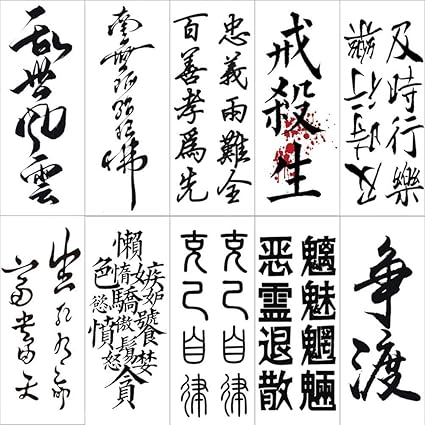 乱世风雲
南無阿彌陀佛
忠義兩難全
百善孝爲先
戒殺生
及時行樂
及時行樂
生死有命
富貴在天
嫉妒饕
懶惰驕傲
色慾憤怒
貪婪
克己自律
克己自律
魑魅魍魎
恶靈退散
争渡